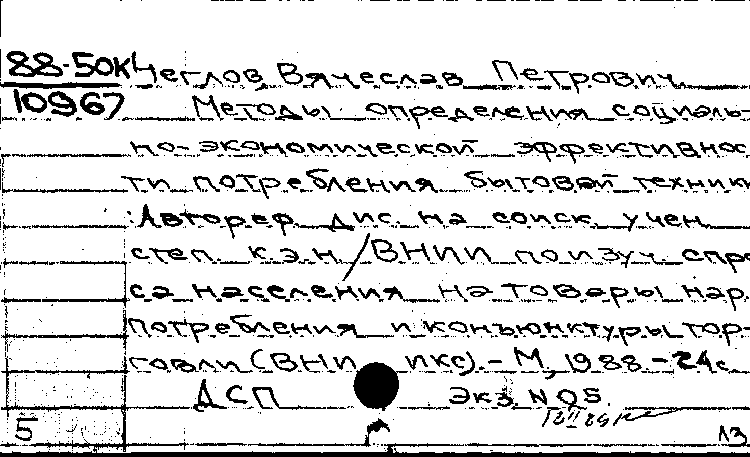 88-50К Чеглов, Вячеслав Петрович.
10967 Методы определения социаль-
но-экономической эффективнос
ти потребления бытовой техники
: Автореф. дис. на соиск. учен
степ. к.э.н / ВНИИ по изуч. спро
са населения на товары нар.
потребления и конъюнктуры тор-
говли (ВНИ ИКС). – М, 1988 – 24с
ДСП Экз. N 05.
5
13